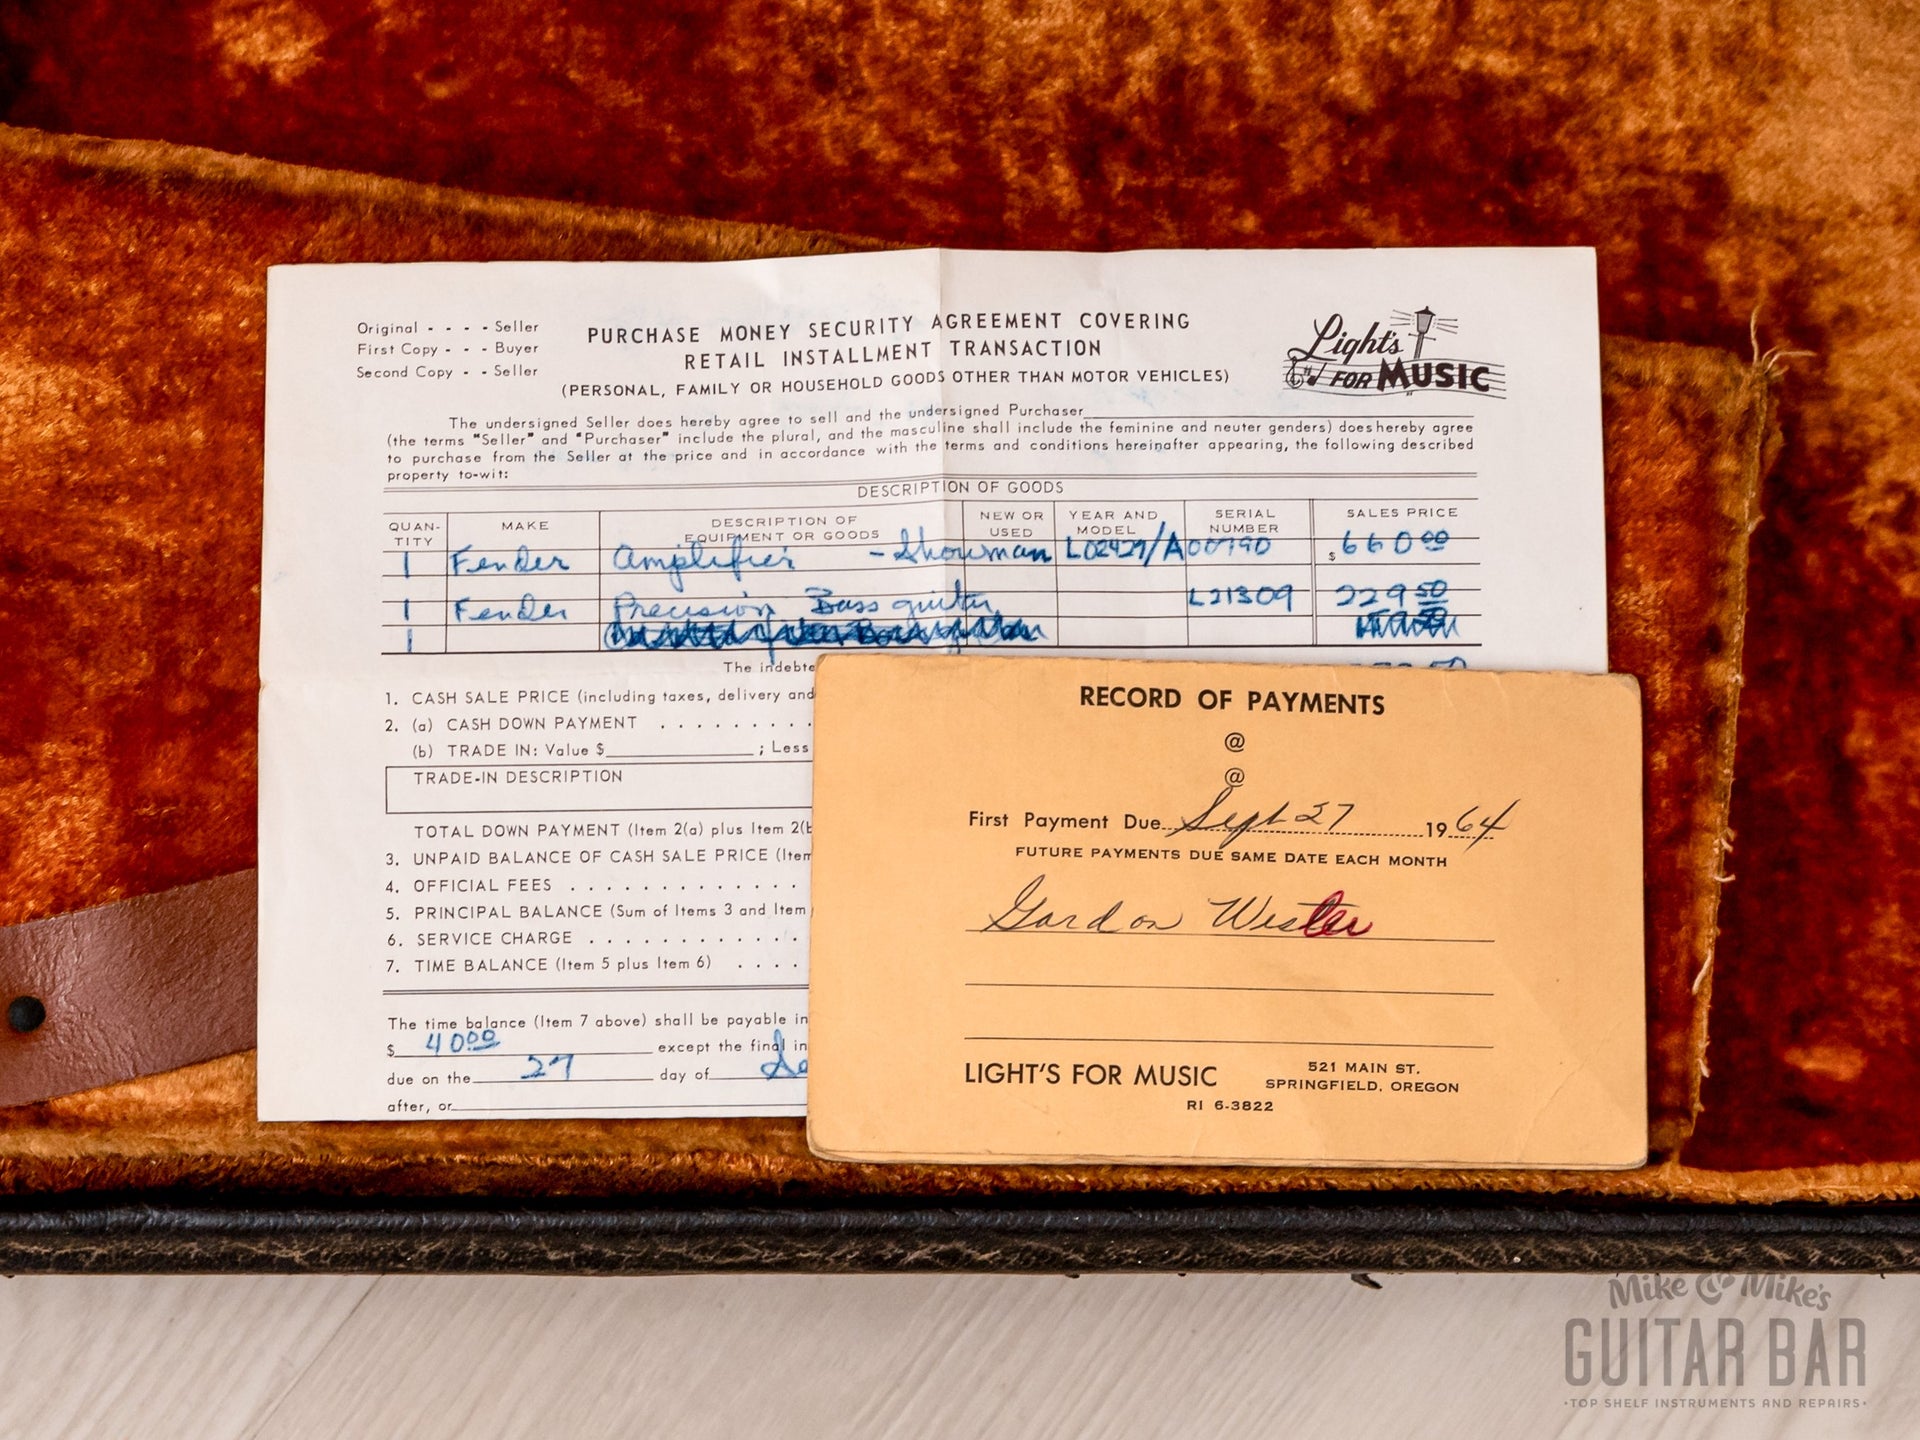 Original - - - - Seller
First Copy - - - Buyer
Second Copy - - Seller
PURCHASE MONEY SECURITY AGREEMENT COVERING
RETAIL INSTALLMENT TRANSACTION
(PERSONAL, FAMILY OR HOUSEHOLD GOODS OTHER THAN MOTOR VEHICLES)
Light's
FOR MUSIC
The undersigned Seller does hereby agree to sell and the undersigned Purchaser
(the terms "Seller" and "Purchaser" include the plural, and the masculine shall include the feminine and neuter genders) does hereby agree
to purchase from the Seller at the price and in accordance with the terms and conditions hereinafter appearing, the following described
property to-wit:
DESCRIPTION OF GOODS
QUAN-TITY MAKE DESCRIPTION OF EQUIPMENT OR GOODS NEW OR USED YEAR AND MODEL SERIAL NUMBER SALES PRICE
1 Fender Amplifier - Showman L02429/A00790 $660.00
1 Fender Precision Bass guitar L21309 229.50
1
The indebte
1. CASH SALE PRICE (including taxes, delivery and
2. (a) CASH DOWN PAYMENT . . . . . . . .
(b) TRADE IN: Value $ ; Less
TRADE-IN DESCRIPTION
TOTAL DOWN PAYMENT (Item 2(a) plus Item 2(b
3. UNPAID BALANCE OF CASH SALE PRICE (Item
4. OFFICIAL FEES . . . . . . . . . . . .
5. PRINCIPAL BALANCE (Sum of Items 3 and Item
6. SERVICE CHARGE . . . . . . . . . . .
7. TIME BALANCE (Item 5 plus Item 6) . . . .
The time balance (Item 7 above) shall be payable in
$ 40.00 except the final in
due on the 27 day of Se
after, or
RECORD OF PAYMENTS
@
@
First Payment Due Sept 27 1964
FUTURE PAYMENTS DUE SAME DATE EACH MONTH
Gordon Wester
LIGHT'S FOR MUSIC
521 MAIN ST.
SPRINGFIELD, OREGON
RI 6-3822
Mike & Mike's
GUITAR BAR
·TOP SHELF INSTRUMENTS AND REPAIRS·